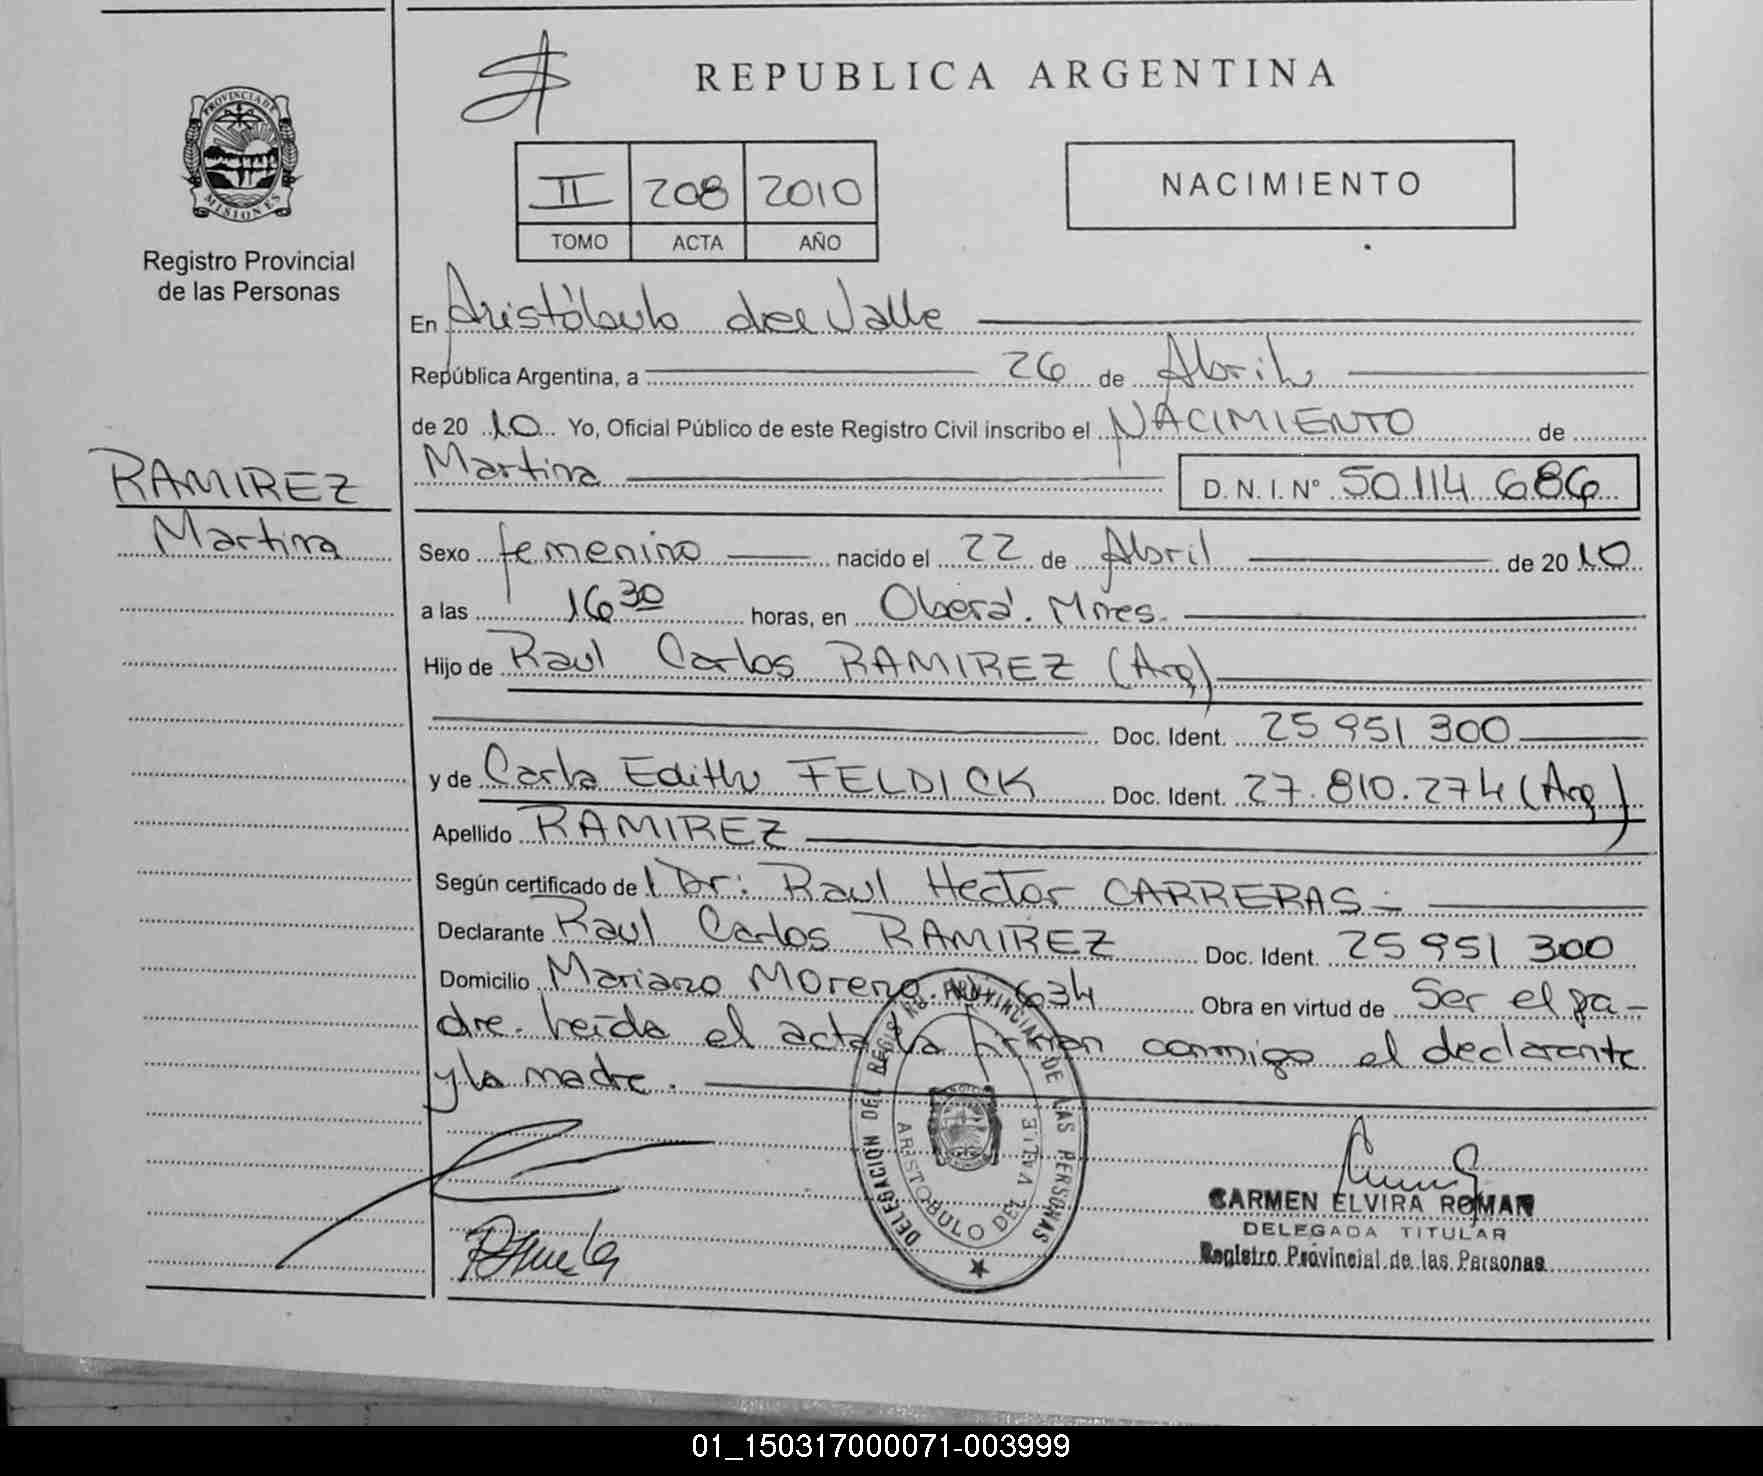 REPUBLICA ARGENTINA
PROVINCIA DE MISIONES
Registro Provincial
de las Personas
II 208 2010
TOMO ACTA AÑO
NACIMIENTO
En Aristóbulo del Valle
República Argentina, a 26 de Abril
de 2010 Yo, Oficial Público de este Registro Civil inscribo el NACIMIENTO de
RAMIREZ
Martina
Martina D.N.I. Nº 50.114.686
Sexo femenino nacido el 22 de Abril de 2010
a las 16 30 horas, en Oberá. Mnes.
Hijo de Raul Carlos RAMIREZ (Arg)
Doc. Ident. 25 951 300
y de Carla Edith FELDICK Doc. Ident. 27.810.274 (Arg)
Apellido RAMIREZ
Según certificado de l Dr: Raul Hector CARRERAS.-
Declarante Raul Carlos RAMIREZ Doc. Ident. 25 951 300
Domicilio Mariano Moreno. Nº 634 Obra en virtud de Ser el pa-
dre. Leída el acta la firman conmigo el declarante
y la madre.
DELEGACIÓN DEL REGISTRO PROVINCIAL DE LAS PERSONAS
ARISTOBULO DEL VALLE
CARMEN ELVIRA ROMAN
DELEGADA TITULAR
Registro Provincial de las Personas
01_150317000071-003999